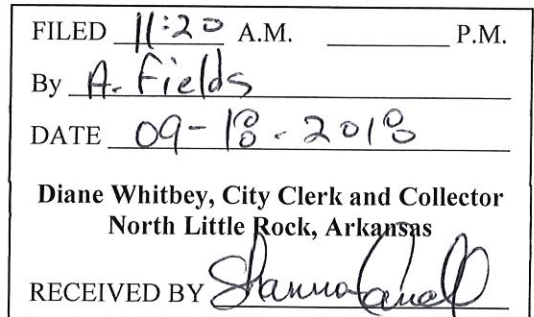 FILED 11:20 A.M. ________ P.M.
By A. Fields
DATE 09-18-2018
Diane Whitbey, City Clerk and Collector
North Little Rock, Arkansas
RECEIVED BY